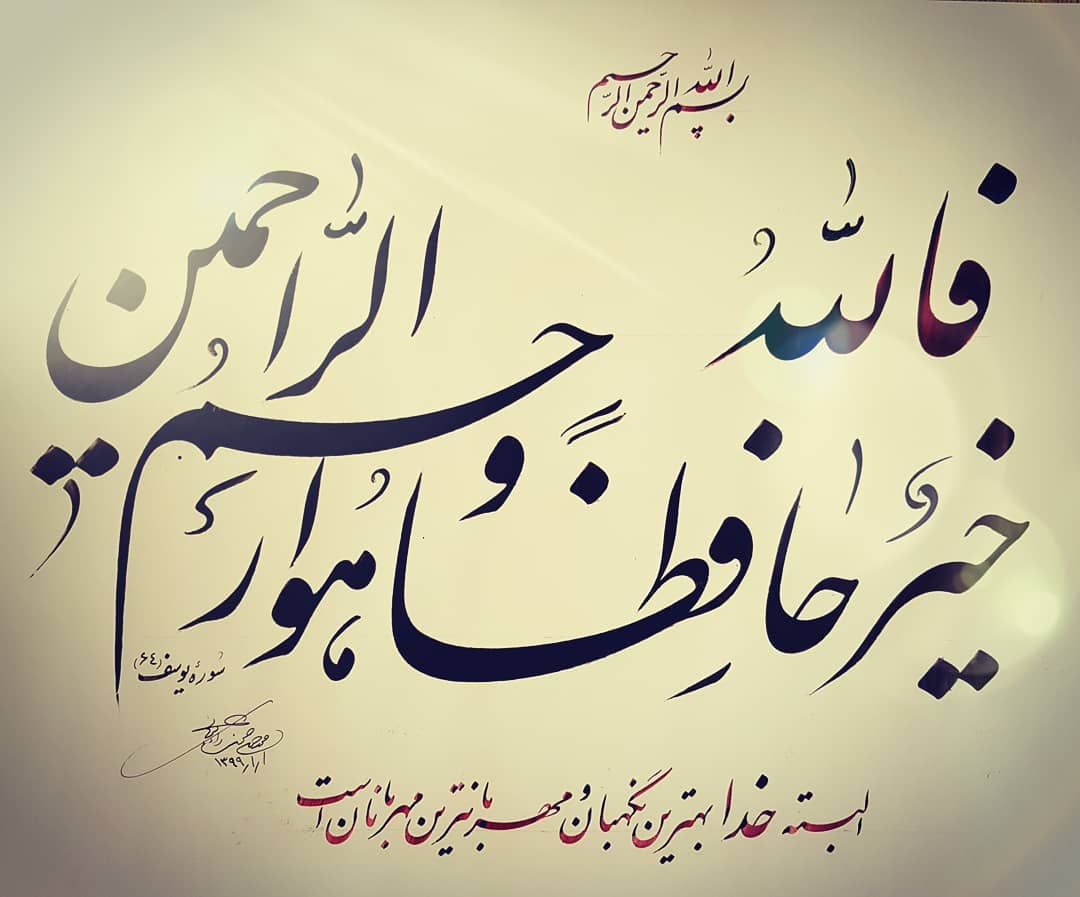 بسم الله الرحمن الرحیم
فاللهُ
خیرٌ حافظاً و هو ارحم الرّاحمین
سورهٔ یوسف (۶۴)
۱۳۹۹
البته خدا بهترین نگهبان و مهربانترین مهربانان است